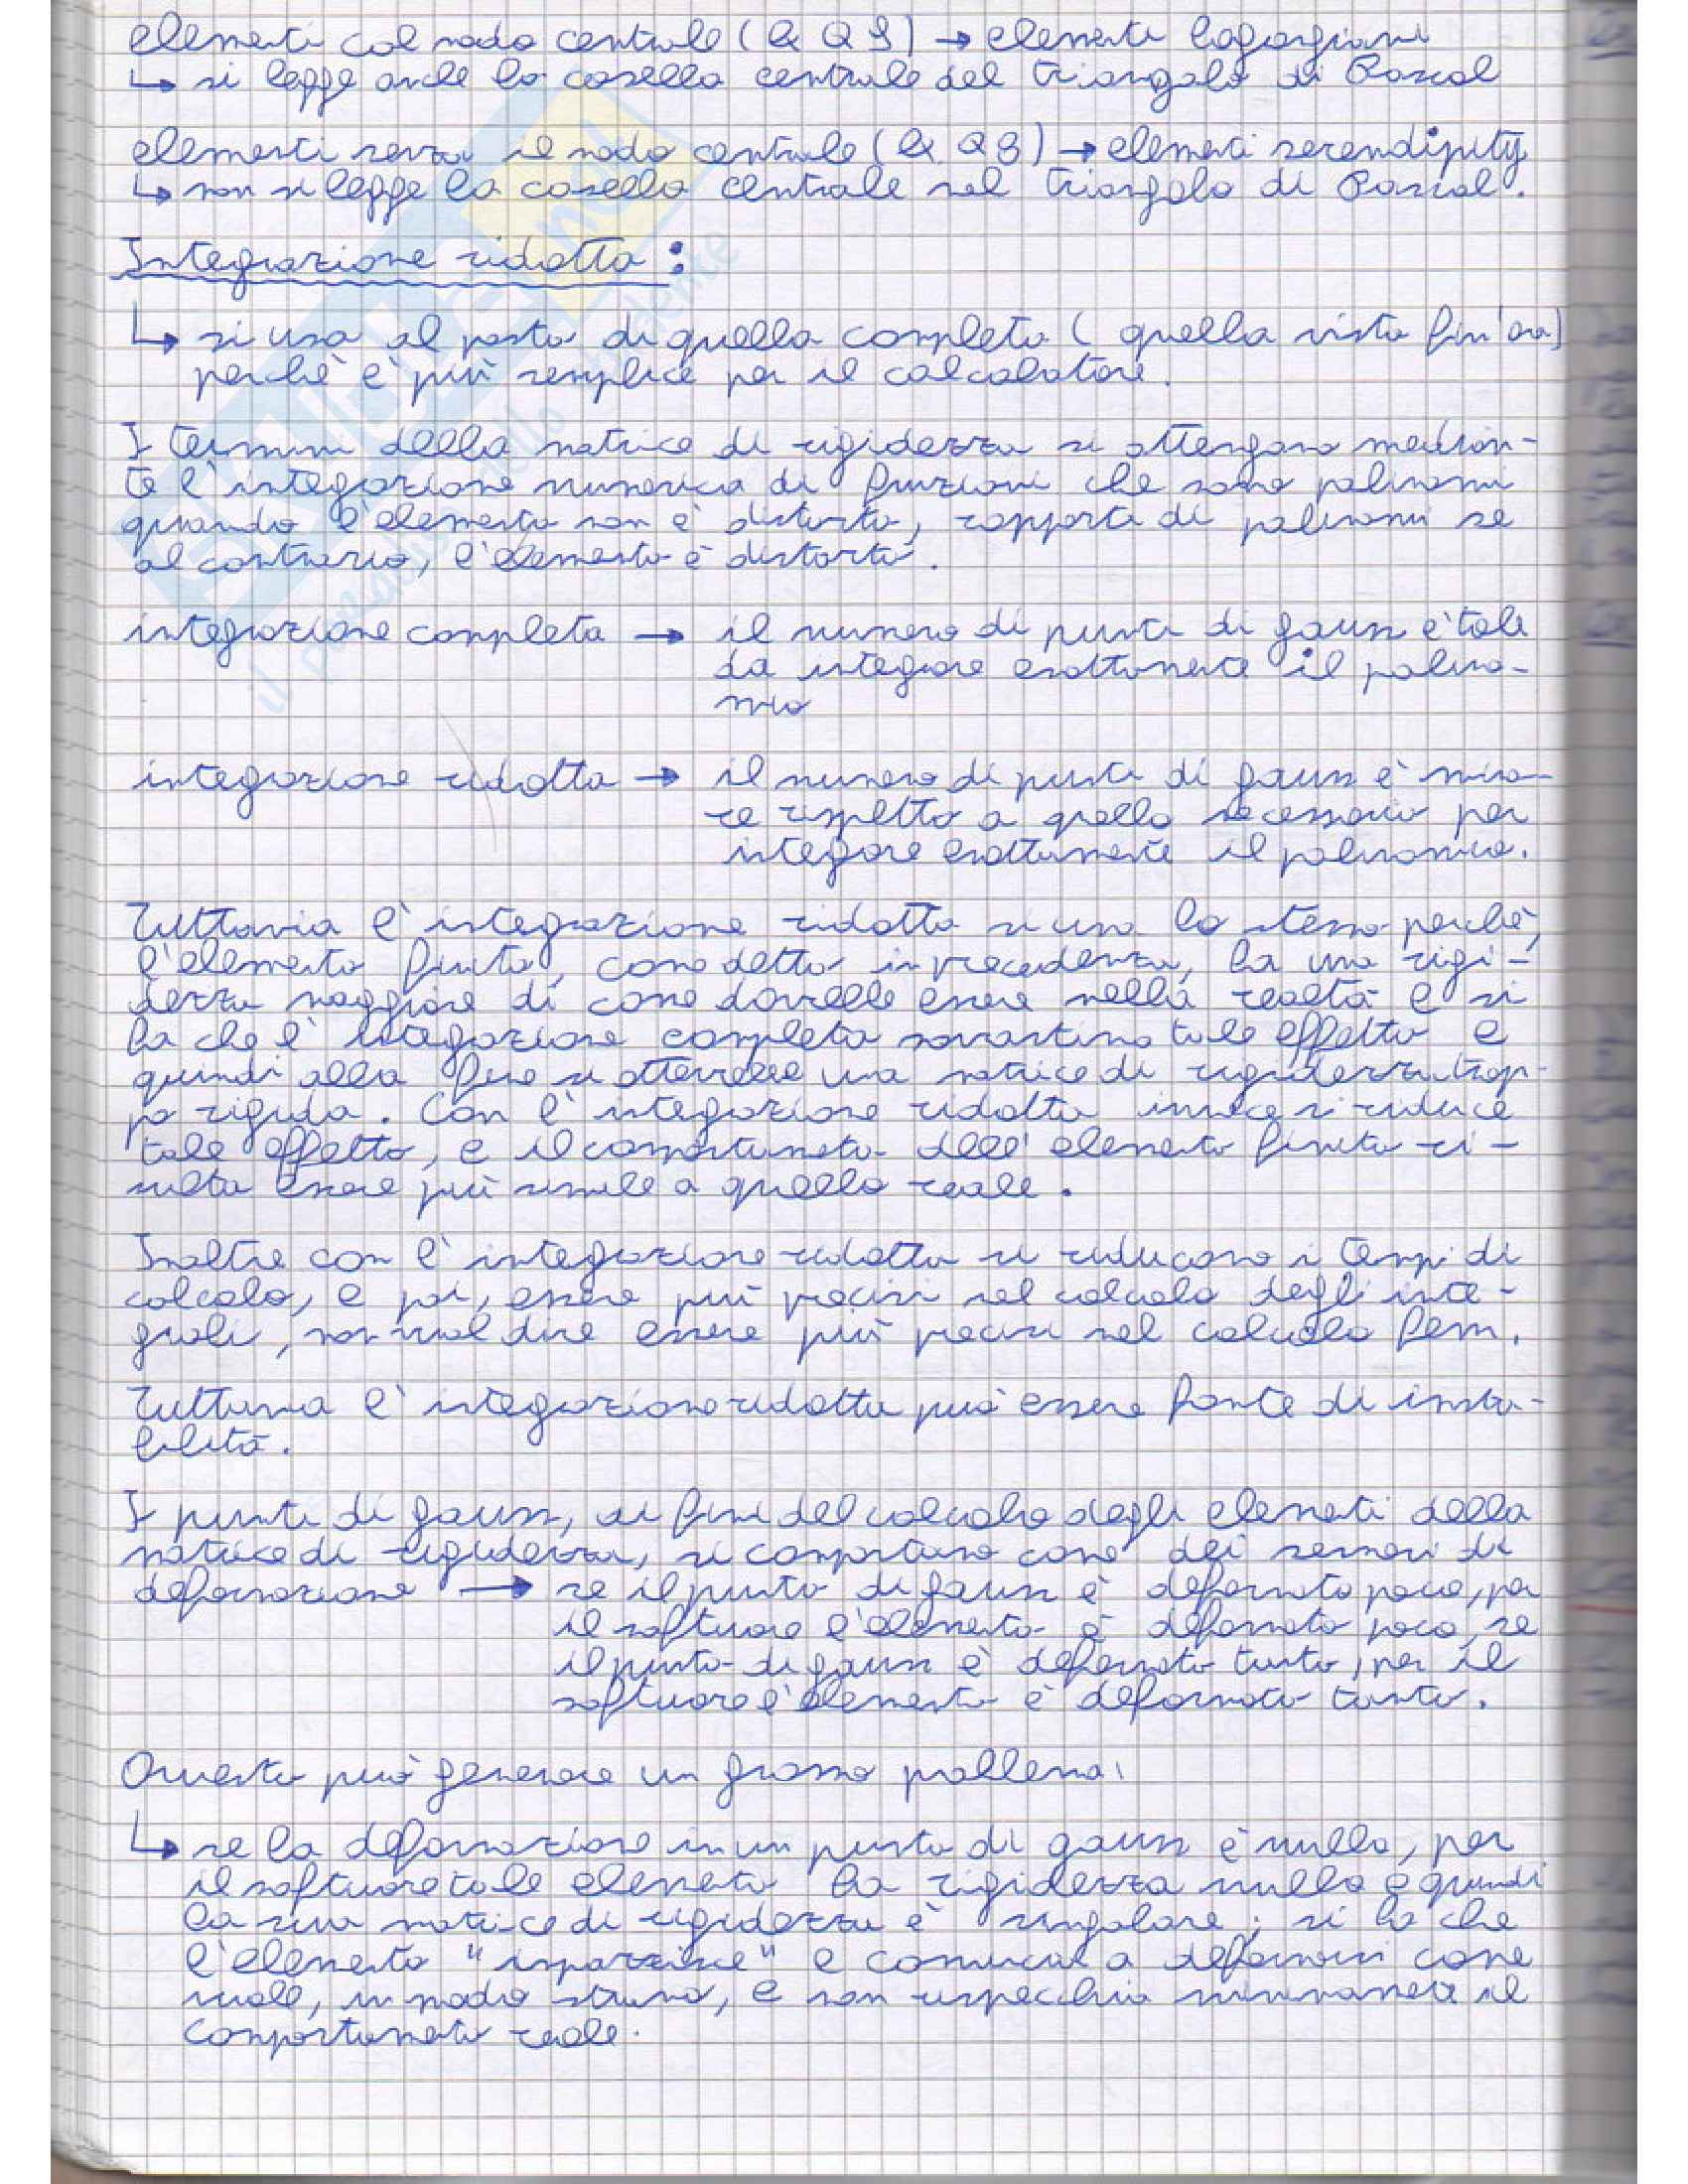 elementi col nodo centrale (es Q9) → elementi lagrangiani
↳ si legge anche la casella centrale del triangolo di Pascal
elementi senza il nodo centrale (es Q8) → elementi serendipity
↳ non si legge la casella centrale nel triangolo di Pascal.
Integrazione ridotta:
↳ si usa al posto di quella completa (quella vista fin'ora)
perchè è più semplice per il calcolatore.
I termini della matrice di rigidezza si ottengono median-
te l'integrazione numerica di funzioni che sono polinomi
quando l'elemento non è distorto, rapporti di polinomi se
al contrario, l'elemento è distorto.
integrazione completa → il numero di punti di gauss è tale
da integrare esattamente il polino-
mio
integrazione ridotta → il numero di punti di gauss è mino-
re rispetto a quello necessario per
integrare esattamente il polinomio.
Tuttavia l'integrazione ridotta si usa lo stesso perchè,
l'elemento finito, come detto in precedenza, ha una rigi-
dezza maggiore di come dovrebbe essere nella realtà e si
ha che l'integrazione completa sovrastima tale effetto e
quindi alla fine si otterrebbe una matrice di rigidezza trop-
po rigida. Con l'integrazione ridotta invece si riduce
tale effetto, e il comportamento dell'elemento finito ri-
sulta essere più simile a quello reale.
Inoltre con l'integrazione ridotta si riducono i tempi di
calcolo, e poi, essere più precisi nel calcolo degli inte-
grali, non vuol dire essere più precisi nel calcolo fem.
Tuttavia l'integrazione ridotta può essere fonte di insta-
bilità.
I punti di gauss, ai fini del calcolo degli elementi della
matrice di rigidezza, si comportano come dei sensori di
deformazione → se il punto di gauss è deformato poco, per
il software l'elemento è deformato poco, se
il punto di gauss è deformato tanto, per il
software l'elemento è deformato tanto.
Questo può generare un grosso problema:
↳ se la deformazione in un punto di gauss è nulla, per
il software tale elemento ha rigidezza nulla e quindi
la sua matrice di rigidezza è singolare; si ha che
l'elemento "impazzisce" e comincia a deformarsi come
vuole, in modo strano, e non rispecchia minimamente il
comportamento reale.